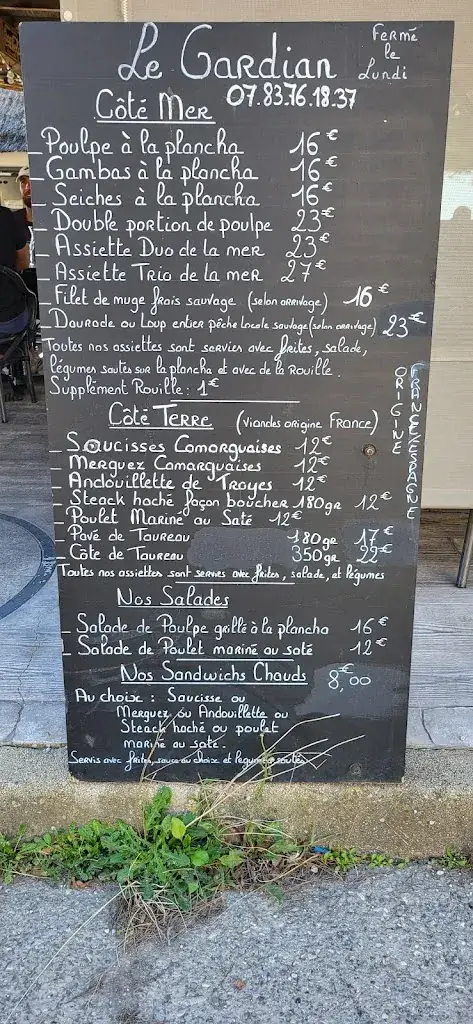 Le Gardian
Fermé
le
Lundi
07.83.76.18.37
Côté Mer
_ Poulpe à la plancha 16€
_ Gambas à la plancha 16€
_ Seiches à la plancha 16€
_ Double portion de poulpe 23€
_ Assiette Duo de la mer 23€
_ Assiette Trio de la mer 27€
_ Filet de muge frais sauvage (selon arrivage) 16€
_ Daurade ou Loup entier pêche Locale sauvage (selon arrivage) 23€
Toutes nos assiettes sont servies avec frites, salade,
légumes sautés sur la plancha et avec de la Rouille.
Supplément Rouille : 1€
Côté Terre (viandes origine France)
_ Saucisses Camarguaises 12€
_ Merguez Camarguaises 12€
_ Andouillette de Troyes 12€
_ Steack haché façon boucher 180gr 12€
_ Poulet Mariné au Saté 12€
_ Pavé de Taureau 180gr 17€
_ Côte de Taureau 350gr 22€
Toutes nos assiettes sont servies avec frites, salade, et légumes
ORIGINE
FRANCE/ESPAGNE
Nos Salades
_ Salade de Poulpe grillé à la plancha 16€
_ Salade de Poulet mariné au saté 12€
Nos Sandwichs Chauds 8,00€
Au choix : Saucisse ou
Merguez ou Andouillette ou
Steack haché ou poulet
mariné au saté.
Servis avec frites, sauce au choix et légumes sautés